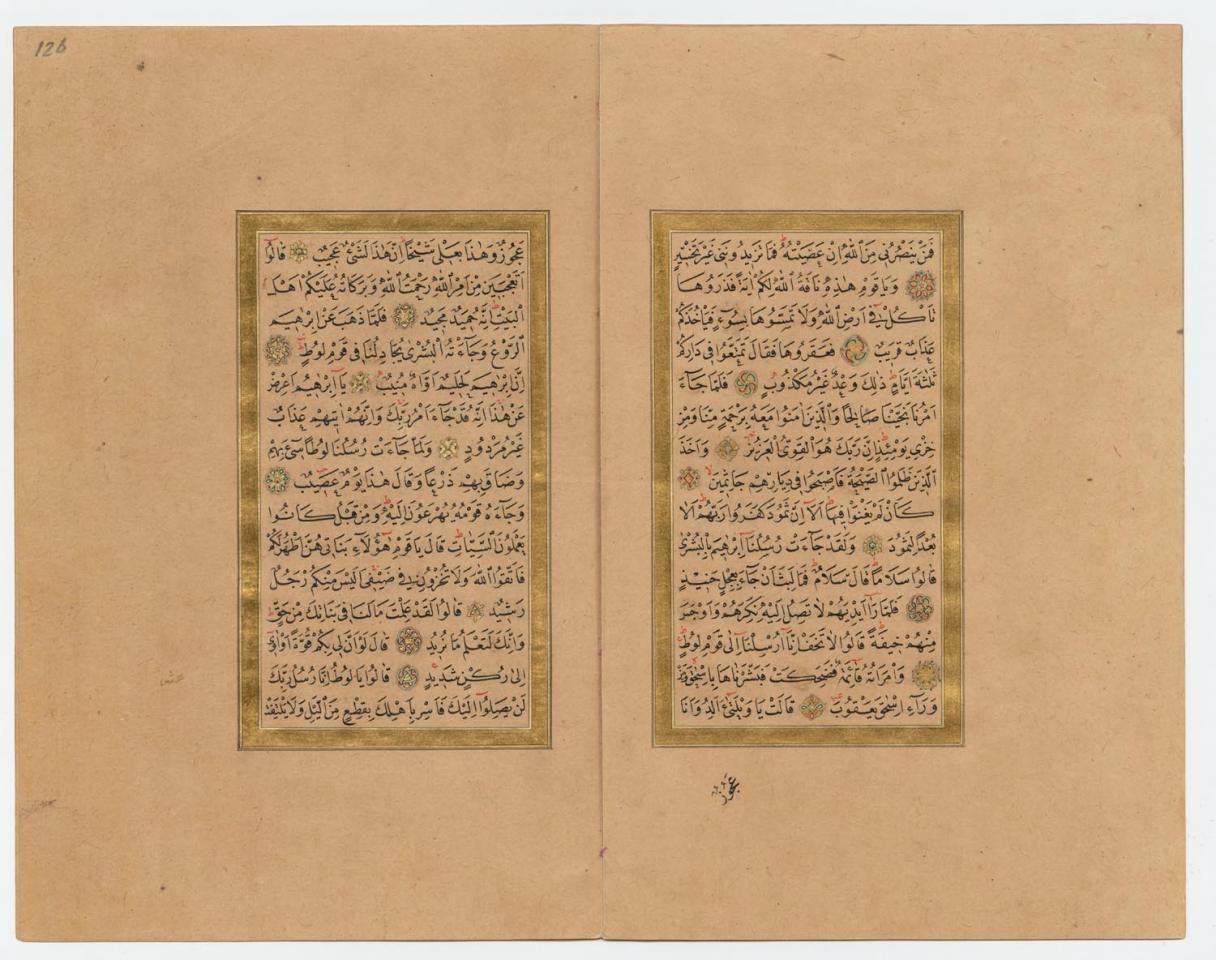 فَمَنْ يَنْصُرُنِي مِنَ اللّٰهِ اِنْ عَصَيْتُهُ فَمَا تَزِيدُونَنِي غَيْرَ تَخْسِيرٍ
وَيَاقَوْمِ هٰذِهِ نَاقَةُ اللّٰهِ لَكُمْ اٰيَةً فَذَرُوهَا
تَأْكُلْ فِي اَرْضِ اللّٰهِ وَلَا تَمَسُّوهَا بِسُوءٍ فَيَأْخُذَكُمْ
عَذَابٌ قَرِيبٌ فَعَقَرُوهَا فَقَالَ تَمَتَّعُوا فِي دَارِكُمْ
ثَلٰثَةَ اَيَّامٍ ذٰلِكَ وَعْدٌ غَيْرُ مَكْذُوبٍ فَلَمَّا جَاءَ
اَمْرُنَا نَجَّيْنَا صَالِحًا وَالَّذِينَ اٰمَنُوا مَعَهُ بِرَحْمَةٍ مِنَّا وَمِنْ
خِزْيِ يَوْمِئِذٍ اِنَّ رَبَّكَ هُوَ الْقَوِيُّ الْعَزِيزُ وَاَخَذَ
الَّذِينَ ظَلَمُوا الصَّيْحَةُ فَاَصْبَحُوا فِي دِيَارِهِمْ جَاثِمِينَ
كَاَنْ لَمْ يَغْنَوْا فِيهَا اَلَا اِنَّ ثَمُودَ كَفَرُوا رَبَّهُمْ اَلَا
بُعْدًا لِثَمُودَ وَلَقَدْ جَاءَتْ رُسُلُنَا اِبْرٰهِيمَ بِالْبُشْرٰى
قَالُوا سَلَامًا قَالَ سَلَامٌ فَمَا لَبِثَ اَنْ جَاءَ بِعِجْلٍ حَنِيذٍ
فَلَمَّا رَاٰ اَيْدِيَهُمْ لَا تَصِلُ اِلَيْهِ نَكِرَهُمْ وَاَوْجَسَ
مِنْهُمْ خِيفَةً قَالُوا لَا تَخَفْ اِنَّا اُرْسِلْنَا اِلٰى قَوْمِ لُوطٍ
وَامْرَاَتُهُ قَائِمَةٌ فَضَحِكَتْ فَبَشَّرْنَاهَا بِاِسْحٰقَ وَمِنْ
وَرَاءِ اِسْحٰقَ يَعْقُوبَ قَالَتْ يَا وَيْلَتٰى ءَاَلِدُ وَاَنَا
عجوز
126
عَجُوزٌ وَهٰذَا بَعْلِي شَيْخًا اِنَّ هٰذَا لَشَيْءٌ عَجِيبٌ قَالُوا
اَتَعْجَبِينَ مِنْ اَمْرِ اللّٰهِ رَحْمَتُ اللّٰهِ وَبَرَكَاتُهُ عَلَيْكُمْ اَهْلَ
الْبَيْتِ اِنَّهُ حَمِيدٌ مَجِيدٌ فَلَمَّا ذَهَبَ عَنْ اِبْرٰهِيمَ
الرَّوْعُ وَجَاءَتْهُ الْبُشْرٰى يُجَادِلُنَا فِي قَوْمِ لُوطٍ
اِنَّ اِبْرٰهِيمَ لَحَلِيمٌ اَوَّاهٌ مُنِيبٌ يَا اِبْرٰهِيمُ اَعْرِضْ
عَنْ هٰذَا اِنَّهُ قَدْ جَاءَ اَمْرُ رَبِّكَ وَاِنَّهُمْ اٰتِيهِمْ عَذَابٌ
غَيْرُ مَرْدُودٍ وَلَمَّا جَاءَتْ رُسُلُنَا لُوطًا سِيءَ بِهِمْ
وَضَاقَ بِهِمْ ذَرْعًا وَقَالَ هٰذَا يَوْمٌ عَصِيبٌ
وَجَاءَهُ قَوْمُهُ يُهْرَعُونَ اِلَيْهِ وَمِنْ قَبْلُ كَانُوا
يَعْمَلُونَ السَّيِّاٰتِ قَالَ يَاقَوْمِ هٰؤُلَاءِ بَنَاتِي هُنَّ اَطْهَرُ لَكُمْ
فَاتَّقُوا اللّٰهَ وَلَا تُخْزُونِ فِي ضَيْفِي اَلَيْسَ مِنْكُمْ رَجُلٌ
رَشِيدٌ قَالُوا لَقَدْ عَلِمْتَ مَا لَنَا فِي بَنَاتِكَ مِنْ حَقٍّ
وَاِنَّكَ لَتَعْلَمُ مَا نُرِيدُ قَالَ لَوْ اَنَّ لِي بِكُمْ قُوَّةً اَوْ اٰوِي
اِلٰى رُكْنٍ شَدِيدٍ قَالُوا يَا لُوطُ اِنَّا رُسُلُ رَبِّكَ
لَنْ يَصِلُوا اِلَيْكَ فَاَسْرِ بِاَهْلِكَ بِقِطْعٍ مِنَ الَّيْلِ وَلَا يَلْتَفِتْ